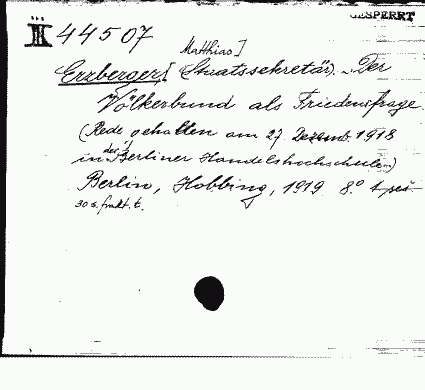 GESPERRT
III 44507
Matthias]
Erzberger[ (Staatssekretär). Der
Völkerbund als Friedensfrage
(Rede gehalten am 27. Dezemb. 1918
in der Berliner Handelshochschule)
Berlin, Hobbing, 1919 8.°
30 s. frakt. t.